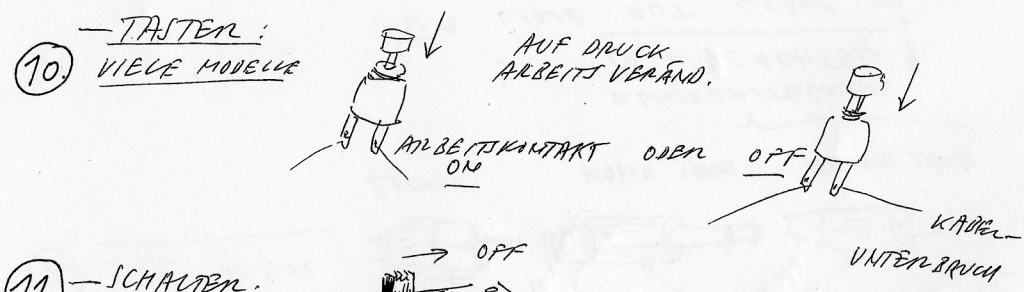 10. — TASTER:
VIELE MODELLE
AUF DRUCK
ARBEITSVERÄND.
ARBEITSKONTAKT ODER OFF
ON
KABEL-
UNTERBRUCH
11 — SCHALTER.
→ OFF